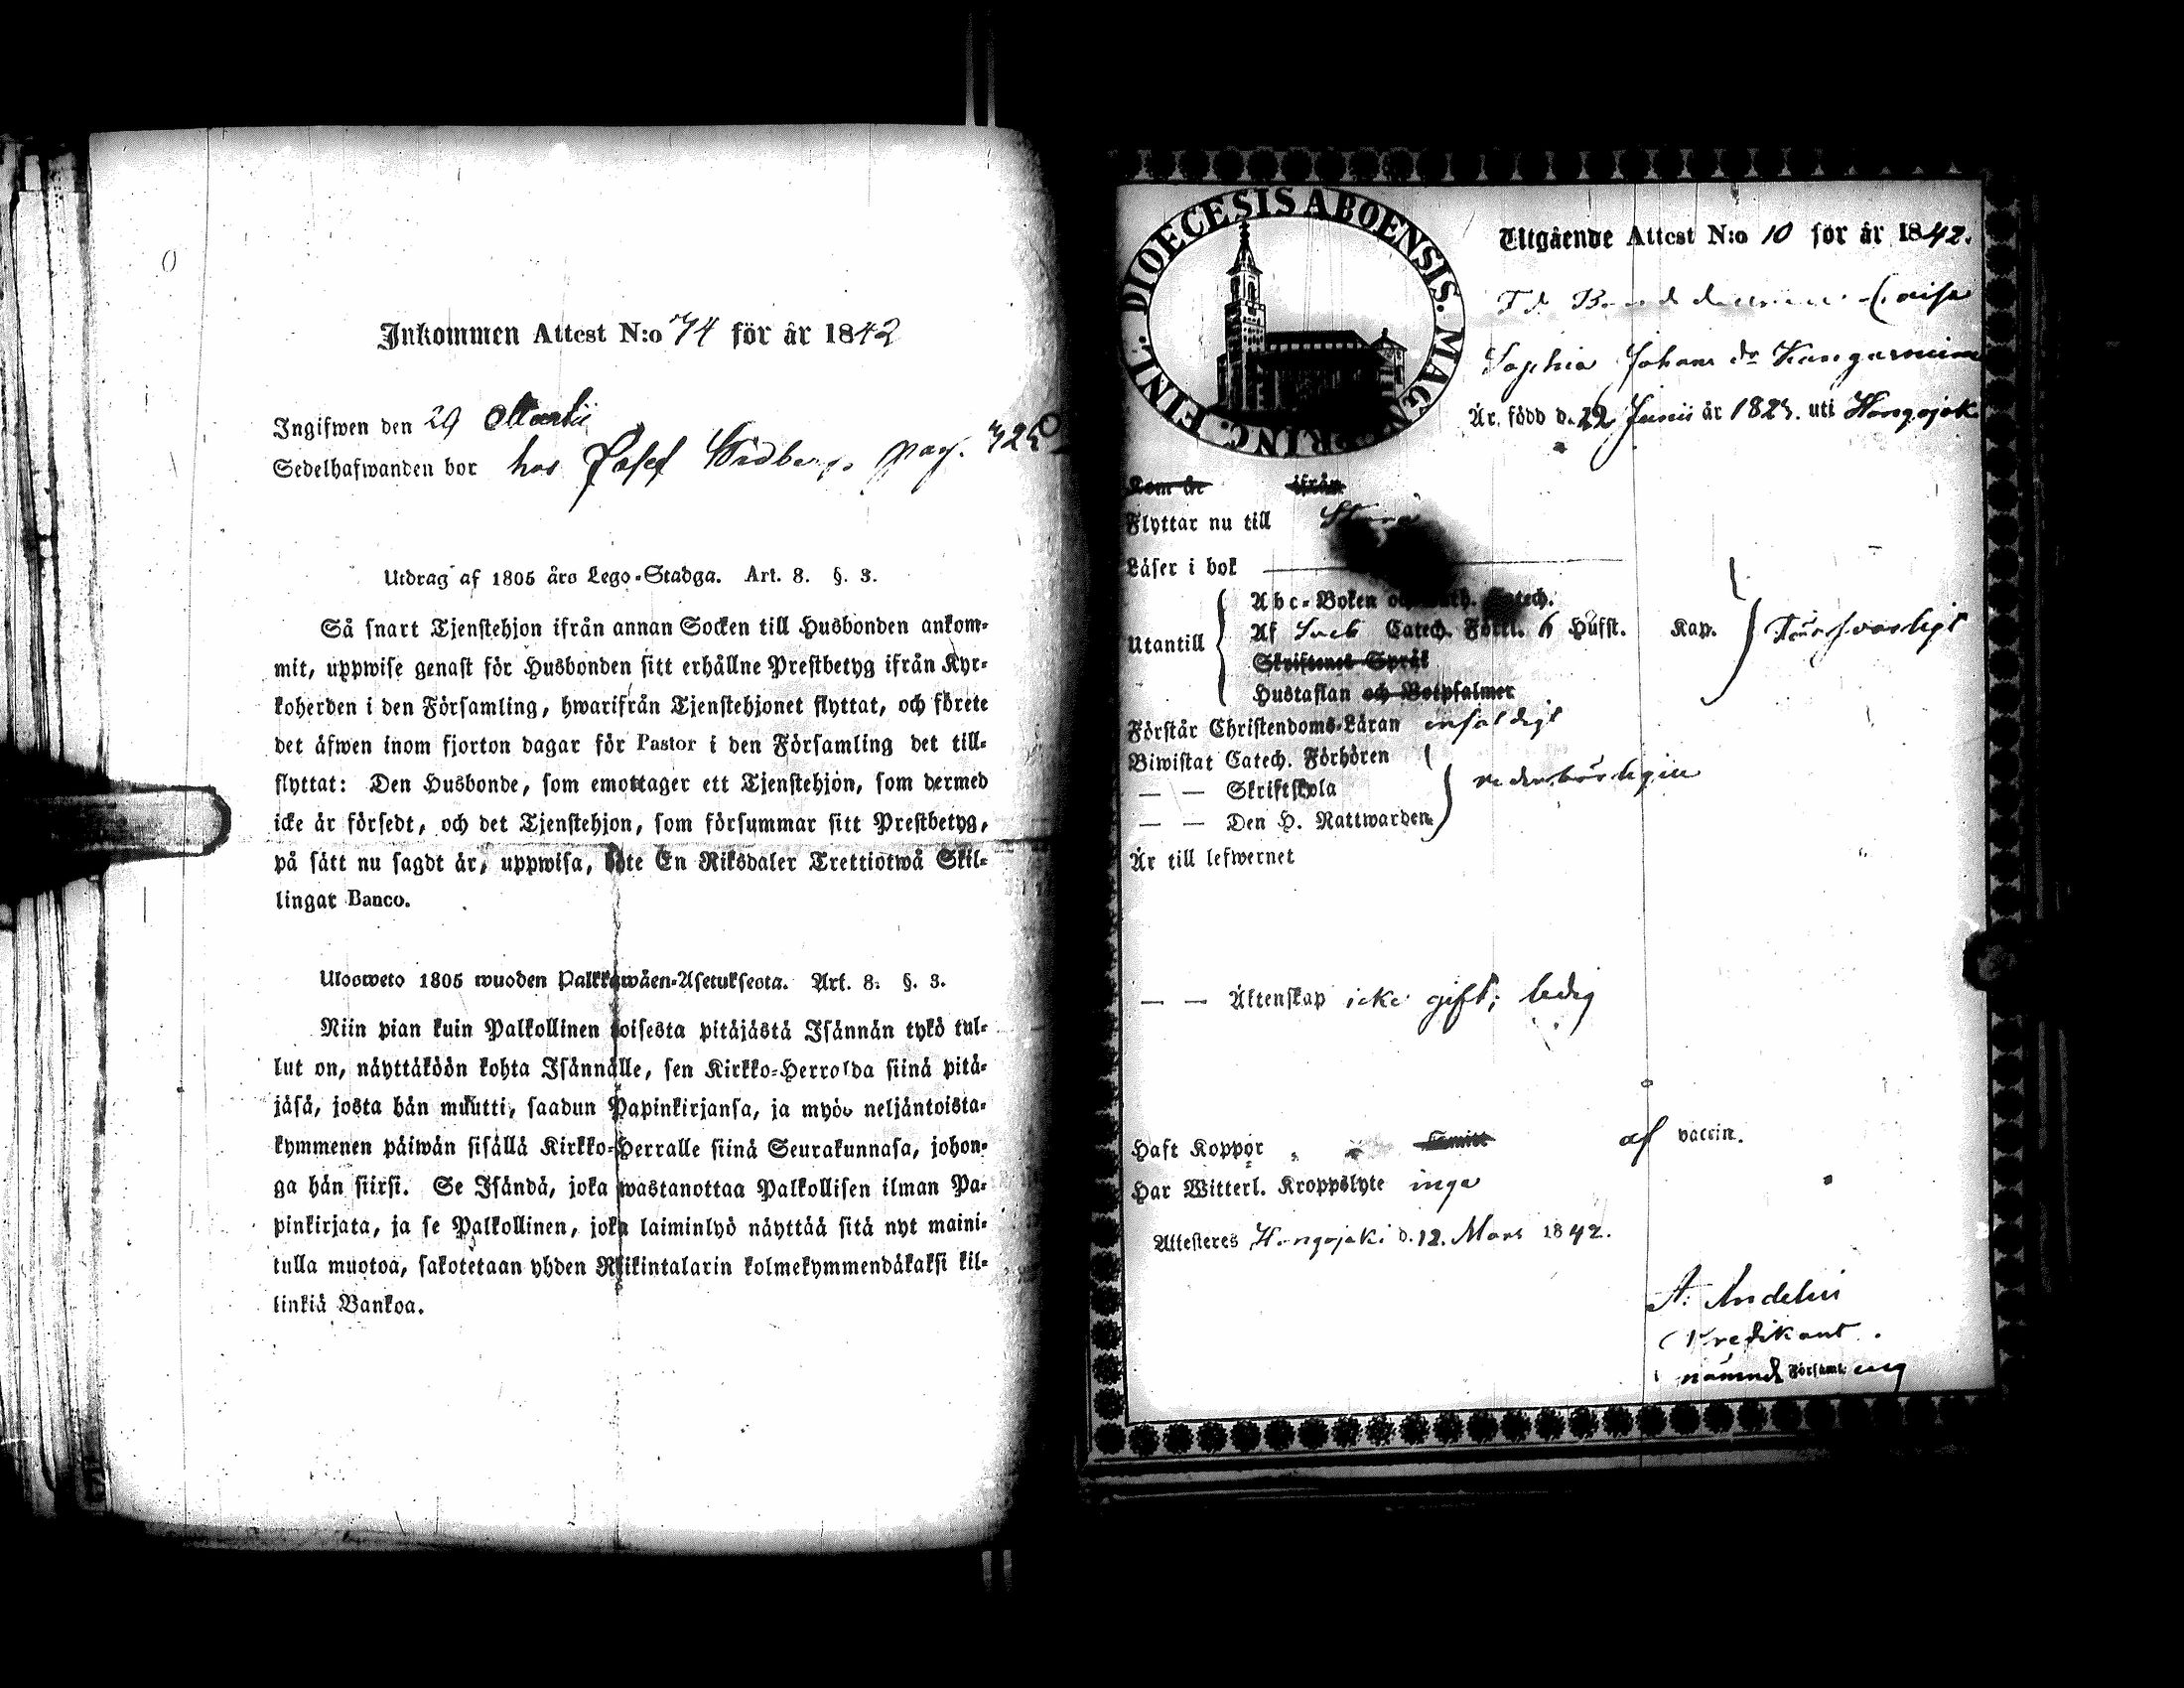 Inkommen Attest N:o 74 för år 1842
Ingifwen den 29 Martii
Sedelhafwanden bor hos Josef Widberg pag. 325
Utdrag af 1805 års Lego-Stadga. Art. 8. §. 3.
Så snart Tjenstehjon ifrån annan Socken till Husbonden ankom-
mit, uppwise genast för Husbonden sitt erhållne Prestbetyg ifrån Kyr-
koherden i den Församling, hwarifrån Tjenstehjonet flyttat, och förete
det äfwen inom fjorton dagar för Pastor i den Församling det till-
flyttat: Den Husbonde, som emottager ett Tjenstehjon, som dermed
icke är försedt, och det Tjenstehjon, som försummar sitt Prestbetyg,
på sätt nu sagdt är, uppwisa, böte En Riksdaler Trettiotwå Skil-
lingar Banco.
Ulosweto 1805 wuoden Palkkawäen-Asetuksesta. Art. 8. §. 3.
Niin pian kuin Palkollinen toisesta pitäjästä Isännän tykö tul-
lut on, näyttäköön kohta Isännälle, sen Kirkko-Herralda siinä pitä-
jäsä, josta hän muutti, saadun Papinkirjansa, ja myös neljäntoista-
kymmenen päiwän sisällä Kirkko-Herralle siinä Seurakunnasa, johon-
ga hän siirsi. Se Isändä, joka wastanottaa Palkollisen ilman Pa-
pinkirjata, ja se Palkollinen, joka laiminlyö näyttää sitä nyt maini-
tulla muotoa, sakotetaan yhden Riikintalarin kolmekymmendäkaksi kil-
linkiä Bankoa.
DIOECESIS ABOENSIS. MAGN. PRINC. FINL.
Utgående Attest N:o 10 för år 1842.
Caisa
Sophia Johans dr
Är född d. 22 Junii år 1823. uti Hongojok
Kom år ifrån
Flyttar nu till
Läser i bok
Utantill
Abc-Boken och Luth. Catech.
Af Sveb Catech. Förkl. 6 Hufst. Kap. Försvarligt
Skriftenes Språk
Hustaflan och Botpsalmer
Förstår Christendoms-Läran enfaldigt
Biwistat Catech. Förhören
— — Skriftskola vederbörligen
— — Den H. Nattwarden
Är till lefwernet
— — Äktenskap icke gift; ledig
Haft Koppor Smitt af vaccin.
Har Witterl. Kroppslyte inga
Attesteres Hongojoki d. 12. Mars 1842.
A: Andelin
Predikant.
i nämnd Församling